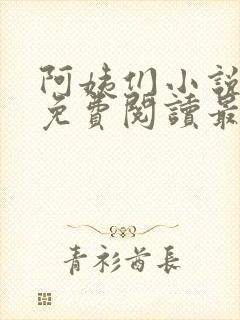 阿姨们小說
免費閱讀最
青衫酋長